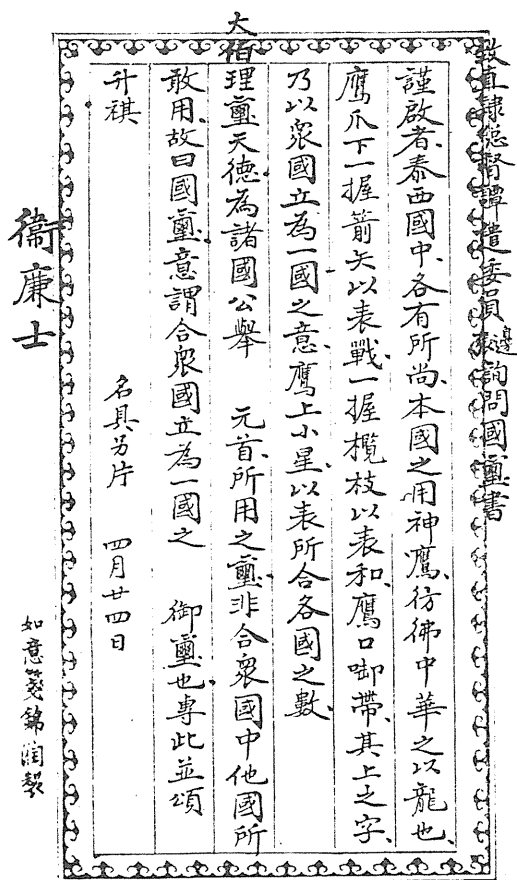 致直隸總督譚遣委員邊來詢問國璽書
謹啟者、泰西國中、各有所尚、本國之用神鷹、彷彿中華之以龍也、
鷹爪下一握箭矢以表戰、一握欖枝以表和、鷹口啣帶、其上之字、
乃以眾國立為一國之意、鷹上小星、以表所合各國之數、
大伯理璽天德、為諸國公舉 元首、所用之璽、非合眾國中他國所
敢用、故曰國璽、意謂合眾國立為一國之 御璽也、專此並頌
升祺 名具另片 四月廿四日
衞廉士
如意箋錦潤製